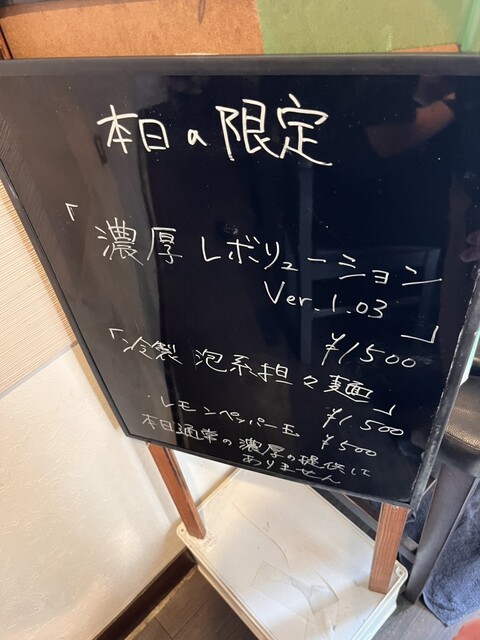 本日の限定
「濃厚 レボリューション
Ver.1.03
」
¥1500
「冷製 泡系担々麺」
¥1500
・レモンペッパー玉 ¥500
本日通常の濃厚の提供は
ありません